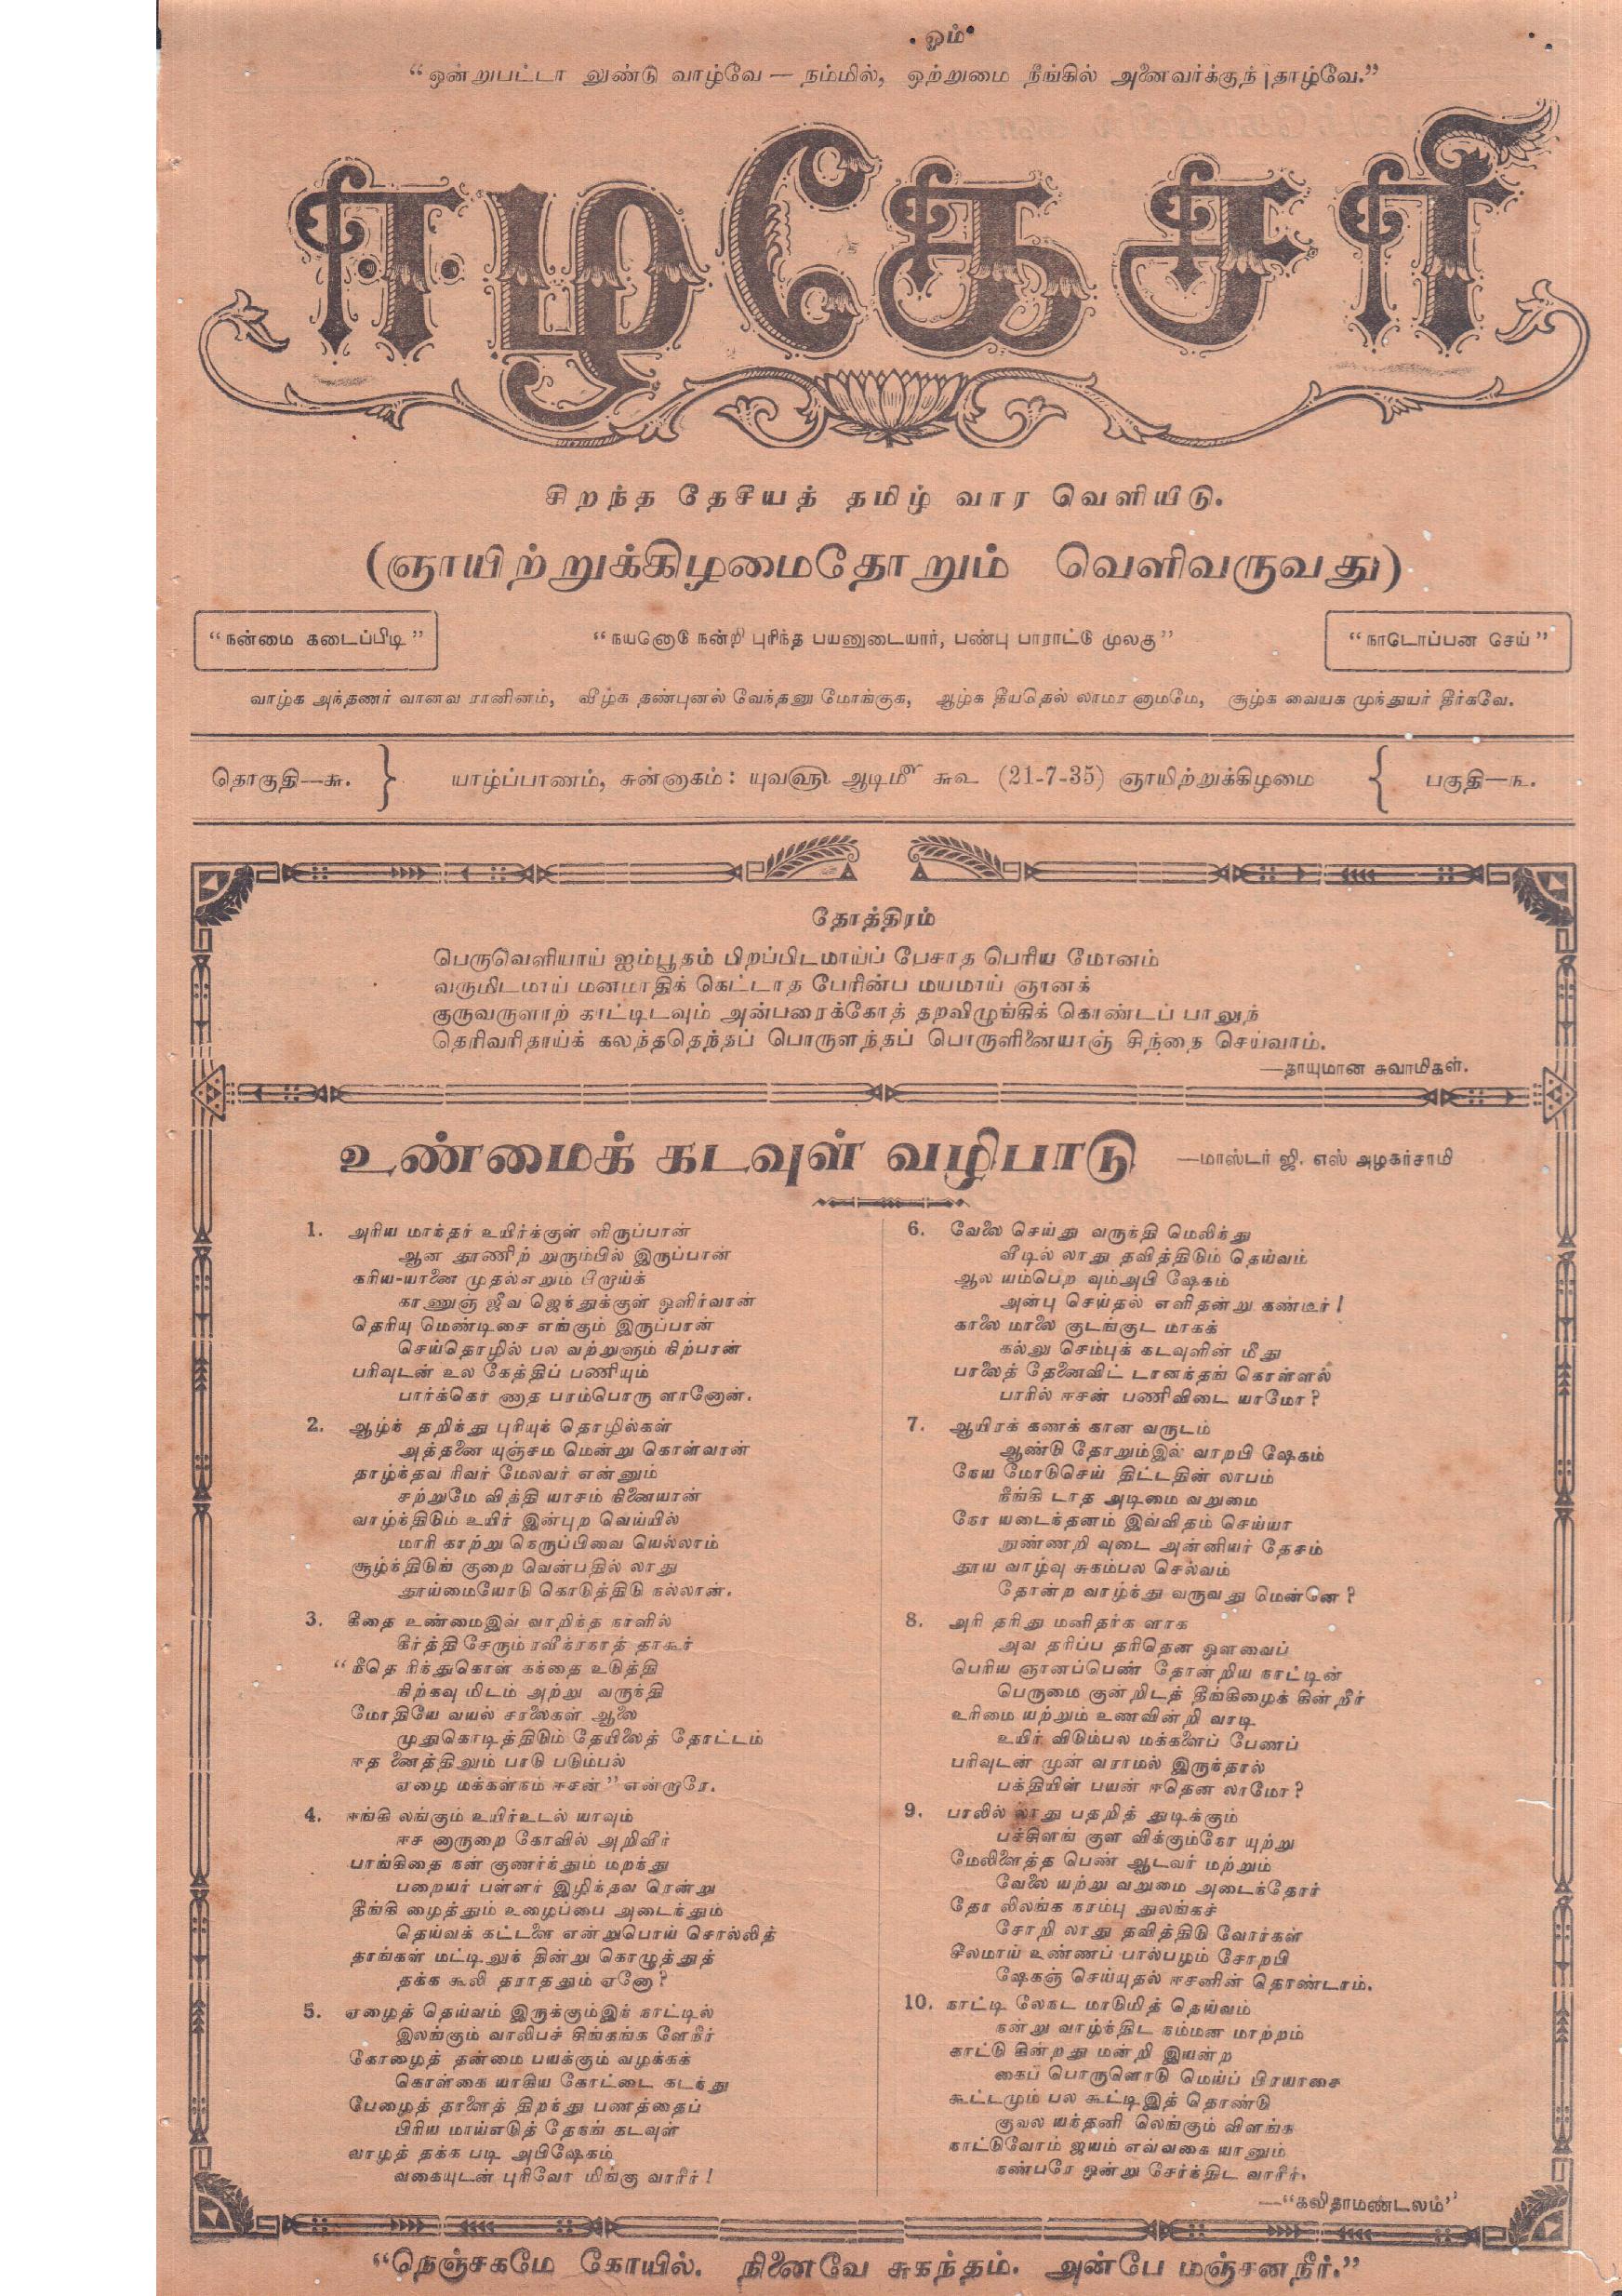 ஓம்
“ஒன்றுபட்டா லுண்டு வாழ்வே — நம்மில், ஒற்றுமை நீங்கில் அனைவர்க்குந் தாழ்வே.”
ஈழகேசரி
சிறந்த தேசியத் தமிழ் வார வெளியீடு.
(ஞாயிற்றுக்கிழமைதோறும் வெளிவருவது)
“நன்மை கடைப்பிடி”
“நயனொடு நன்றி புரிந்த பயனுடையார், பண்பு பாராட்டு முலகு”
“நாடொப்பன செய்”
வாழ்க அந்தணர் வானவ ரானினம், வீழ்க தண்புனல் வேந்தனு மோங்குக, ஆழ்க தீயதெல் லாமர னாமமே, சூழ்க வையக முந்துயர் தீர்கவே.
தொகுதி—௬. } யாழ்ப்பாணம், சுன்னாகம்: யுவ௵ ஆடி௴ ௬௳ (21-7-35) ஞாயிற்றுக்கிழமை { பகுதி—௩.
தோத்திரம்
பெருவெளியாய் ஐம்பூதம் பிறப்பிடமாய்ப் பேசாத பெரிய மோனம்
வருமிடமாய் மனமாதிக் கெட்டாத பேரின்ப மயமாய் ஞானக்
குருவருளாற் காட்டிடவும் அன்பரைக்கோத் தறவிழுங்கிக் கொண்டப் பாலுந்
தெரிவரிதாய்க் கலந்ததெந்தப் பொருளந்தப் பொருளினையாஞ் சிந்தை செய்வாம்.
—தாயுமான சுவாமிகள்.
உண்மைக் கடவுள் வழிபாடு
—மாஸ்டர் ஜி. எஸ் அழகர்சாமி
1. அரிய மாந்தர் உயிர்க்குள் ளிருப்பான்
ஆன தூணிற் றுரும்பில் இருப்பான்
கரிய-யானை முதல்எறும் பீறாய்க்
காணுஞ் ஜீவ ஜெந்துக்குள் ஒளிர்வான்
தெரியு மெண்டிசை எங்கும் இருப்பான்
செய்தொழில் பல வற்றுளும் நிற்பான்
பரிவுடன் உல கேத்திப் பணியும்
பார்க்கொ ணாத பரம்பொரு ளானோன்.
2. ஆழ்ந் தறிந்து புரியுந் தொழில்கள்
அத்தனை யுஞ்சம மென்று கொள்வான்
தாழ்ந்தவ ரிவர் மேலவர் என்னும்
சற்றுமே வித்தி யாசம் நினையான்
வாழ்ந்திடும் உயிர் இன்புற வெய்யில்
மாரி காற்று நெருப்பிவை யெல்லாம்
சூழ்ந்திடுங் குறை வென்பதில் லாது
தூய்மையோடு கொடுத்திடு நல்லான்.
3. கீதை உண்மைஇவ் வாறிந்த நாளில்
கீர்த்தி சேரும் ரவீந்ரநாத் தாகூர்
“நீதெ ரிந்துகொள் கந்தை உடுத்தி
நிற்கவு மிடம் அற்று வருந்தி
மோதியே வயல் சாலைகள் ஆலை
முதுகொடித்திடும் தேயிலைத் தோட்டம்
ஈத னைத்திலும் பாடு படும்பல்
ஏழை மக்கள்நம் ஈசன்” என்றாரே.
4. ஈங்கி லங்கும் உயிர்உடல் யாவும்
ஈச னாருறை கோவில் அறிவீர்
பாங்கிதை நன் குணர்ந்தும் மறந்து
பறையர் பள்ளர் இழிந்தவ ரென்று
தீங்கி ழைத்தும் உழைப்பை அடைந்தும்
தெய்வக் கட்டளை என்றுபொய் சொல்லித்
தாங்கள் மட்டிலுந் தின்று கொழுத்துத்
தக்க கூலி தராததும் ஏனோ?
5. ஏழைத் தெய்வம் இருக்கும்இந் நாட்டில்
இலங்கும் வாலிபச் சிங்கங்க ளேநீர்
கோழைத் தன்மை பயக்கும் வழக்கக்
கொள்கை யாகிய கோட்டை கடந்து
பேழைத் தாளைத் திறந்து பணத்தைப்
பிரிய மாய்எடுத் தேநங் கடவுள்
வாழத் தக்க படி அபிஷேகம்
வகையுடன் புரிவோ மிங்கு வாரீர்!
6. வேலை செய்து வருந்தி மெலிந்து
வீடில் லாது தவித்திடும் தெய்வம்
ஆல யம்பெற வும்அபி ஷேகம்
அன்பு செய்தல் எளிதன்று கண்டீர்!
காலை மாலை குடங்குட மாகக்
கல்லு செம்புக் கடவுளின் மீது
பாலைத் தேனைவிட் டானந்தங் கொள்ளல்
பாரில் ஈசன் பணிவிடை யாமோ?
7. ஆயிரக் கணக் கான வருடம்
ஆண்டு தோறும்இவ் வாறபி ஷேகம்
நேய மோடுசெய் திட்டதின் லாபம்
நீங்கி டாத அடிமை வறுமை
நோ யடைந்தனம் இவ்விதம் செய்யா
நுண்ணறி வுடை அன்னியர் தேசம்
தூய வாழ்வு சுகம்பல செல்வம்
தோன்ற வாழ்ந்து வருவது மென்னே?
8. அரி தரிது மனிதர்க ளாக
அவ தரிப்ப தரிதென ஔவைப்
பெரிய ஞானப்பெண் தோன்றிய நாட்டின்
பெருமை குன்றிடத் தீங்கிழைக் கின்றீர்
உரிமை யற்றும் உணவின்றி வாடி
உயிர் விடும்பல மக்களைப் பேணப்
பரிவுடன் முன் வராமல் இருந்தால்
பக்தியின் பயன் ஈதென லாமோ?
9. பாலில் லாது பதறித் துடிக்கும்
பச்சிளங் குள விக்கும்நோ யுற்று
மேலிளைத்த பெண் ஆடவர் மற்றும்
வேலை யற்று வறுமை அடைந்தோர்
தோ லிலங்க நரம்பு துலங்கச்
சோறி லாது தவித்திடு வோர்கள்
சீலமாய் உண்ணப் பால்பழம் சோறபி
ஷேகஞ் செய்யுதல் ஈசனின் தொண்டாம்.
10. நாட்டி லேநட மாடுமித் தெய்வம்
நன்று வாழ்ந்திட நம்மன மாற்றம்
காட்டு கின்றது மன்றி இயன்ற
கைப் பொருளொடு மெய்ப் பிரயாசை
கூட்டமும் பல கூட்டிஇத் தொண்டு
குவல யந்தனி லெங்கும் விளங்க
நாட்டுவோம் ஜயம் எவ்வகை யானும்
நண்பரே ஒன்று சேர்ந்திட வாரீர்.
—“கலிதாமண்டலம்”
“நெஞ்சகமே கோயில். நினைவே சுகந்தம். அன்பே மஞ்சன நீர்.”